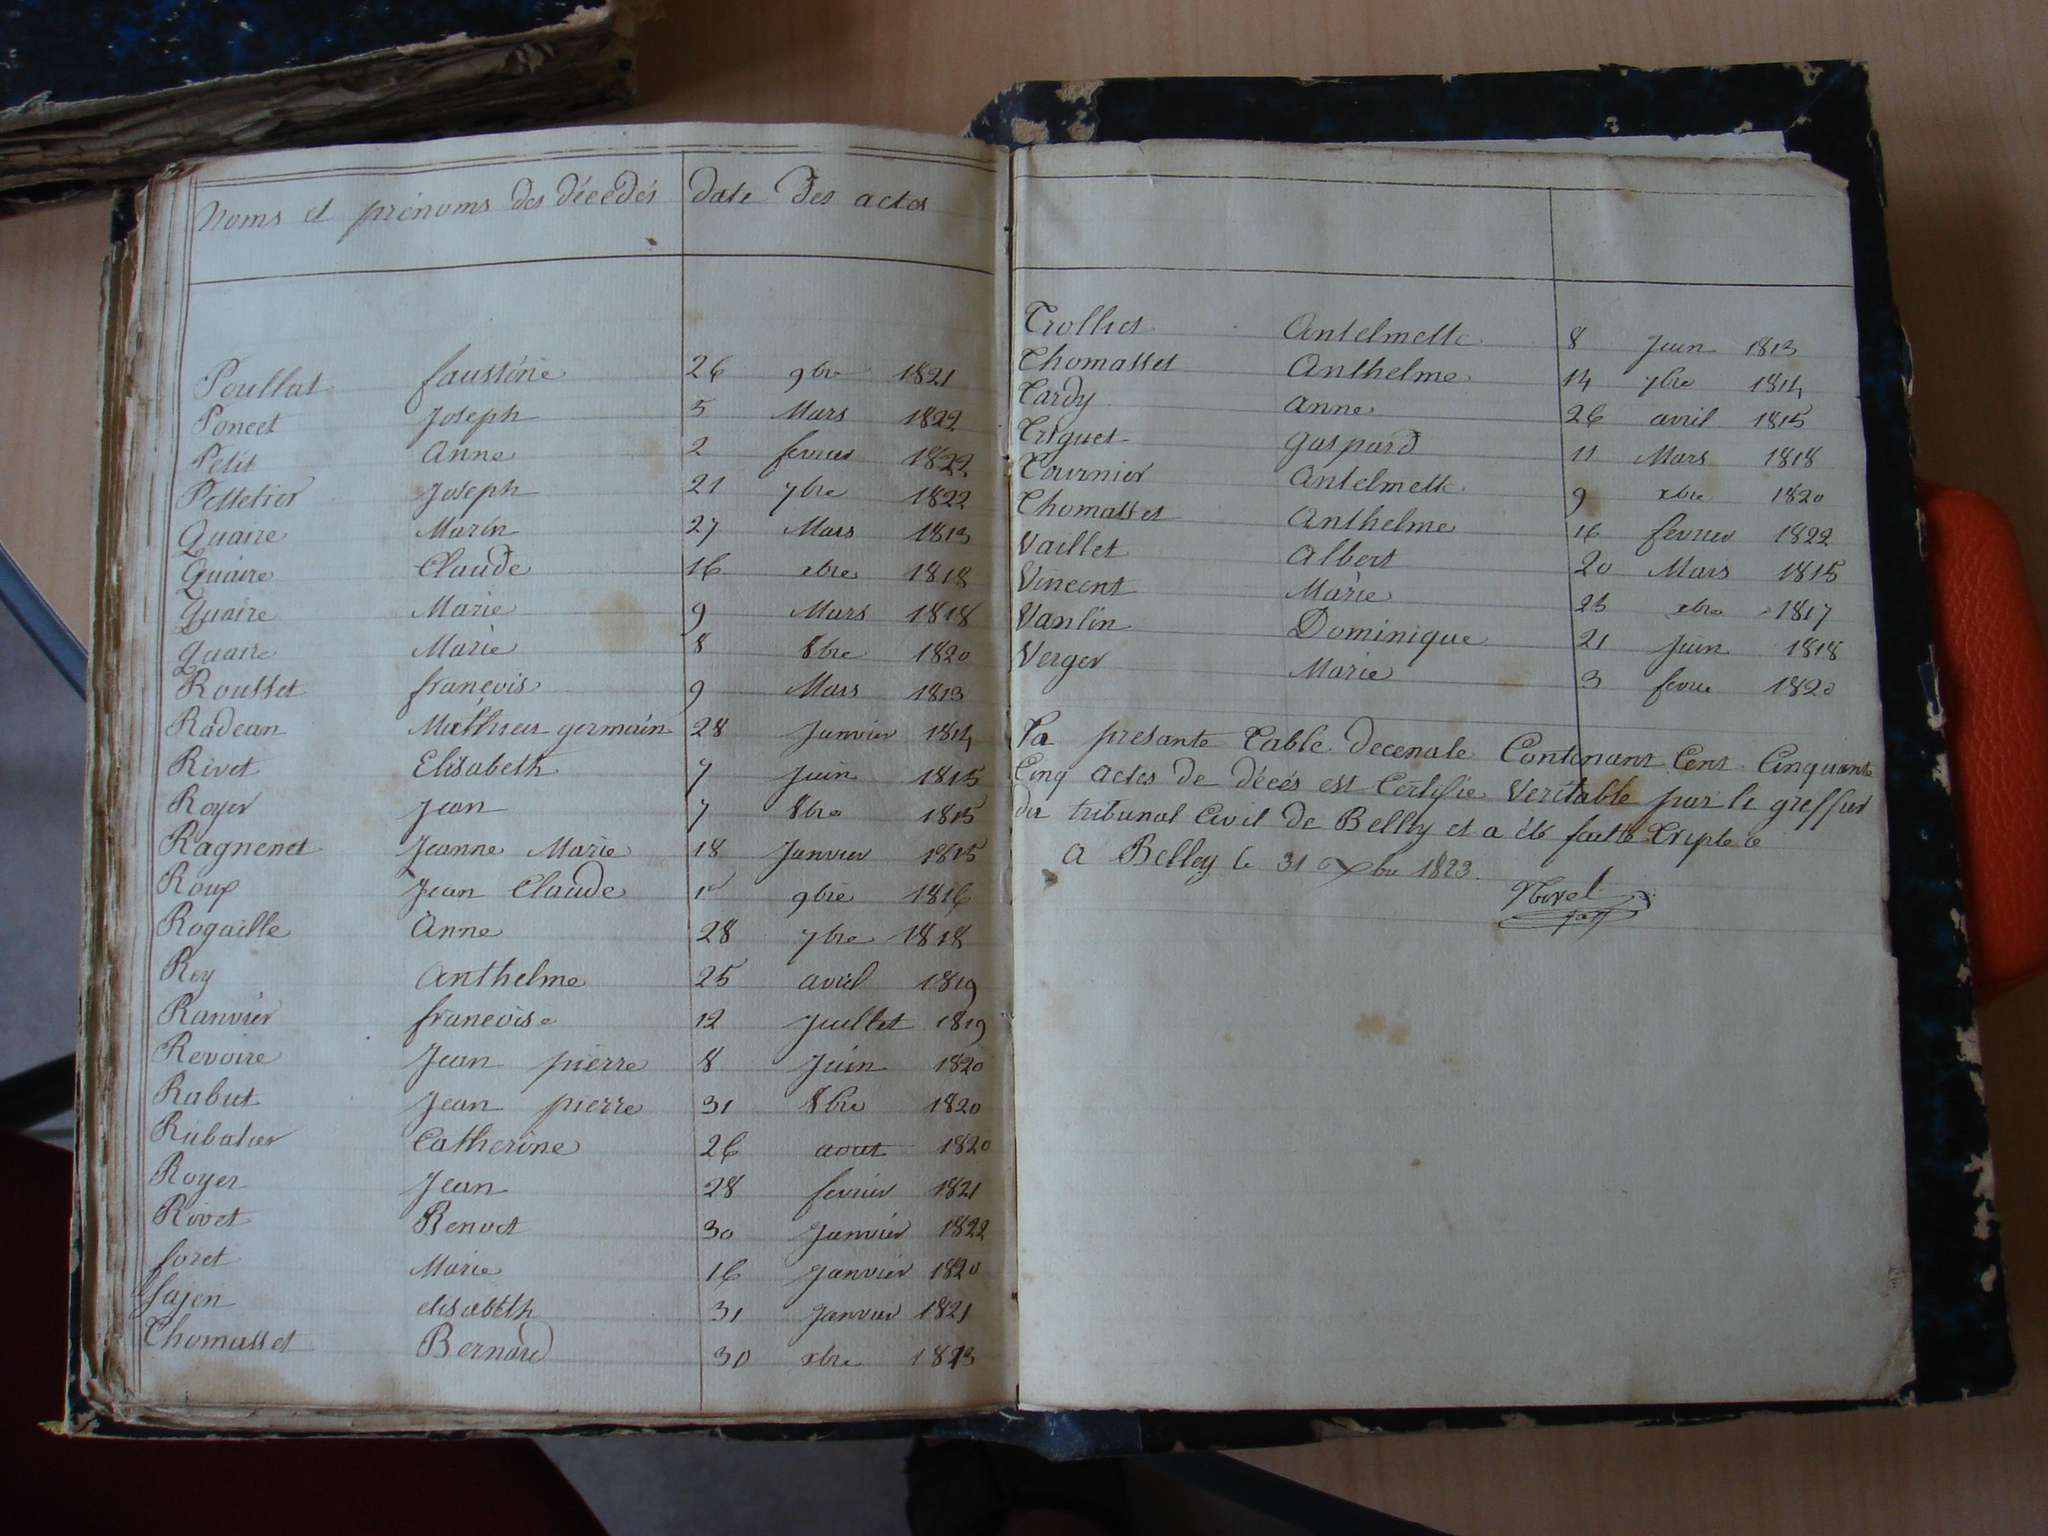 Noms et prénoms des décedés date des actes
Poullat faustine 26 9bre 1821
Poncet Joseph 5 Mars 1822
Petit Anne 2 fevrier 1822
Pelletier Joseph 21 7bre 1822
Quaire Marin 27 Mars 1813
Quaire Claude 16 xbre 1818
quaire Marie 9 Mars 1818
quaire Marie 8 8bre 1820
Rousset francois 9 Mars 1813
Radean Mathieu germain 28 Janvier 1814
Rivet Elisabeth 7 Juin 1815
Royer Jean 7 8bre 1815
Ragnenet Jeanne Marie 18 Janvier 1815
Roux Jean Claude 1er 9bre 1816
Rogaille Anne 28 7bre 1818
Rey anthelme 25 avril 1819
Ranvier francoise 12 Juillet 1819
Revoire Jean pierre 8 Juin 1820
Rabut Jean pierre 31 8bre 1820
Rubatier Catherine 26 aout 1820
Royer Jean 28 fevrier 1821
Rivet Benoit 30 Janvier 1822
foret Marie 16 Janvier 1820
Sajen elisabeth 31 Janvier 1821
Thomasset Bernard 30 xbre 1813
Trolliet Antelmette 8 Juin 1813
Thomasset Anthelme 14 7bre 1814
Tardy anne 26 avril 1815
Triguet gaspard 11 Mars 1818
Tournier Antelmette 9 xbre 1820
Thomasset Anthelme 16 fevrier 1822
Vaillet Albert 20 Mars 1815
Vincent Marie 23 xbre 1817
Vanlin Dominique 21 Juin 1818
Verger Marie 3 fevrier 1820
La presante Table decenale Contenant Cent Cinquante
Cinq actes de décés est Certifie Veritable par le greffier
du tribunal Civil de Belley et a été faitte triple ce
a Belley le 31 Xbre 1823.